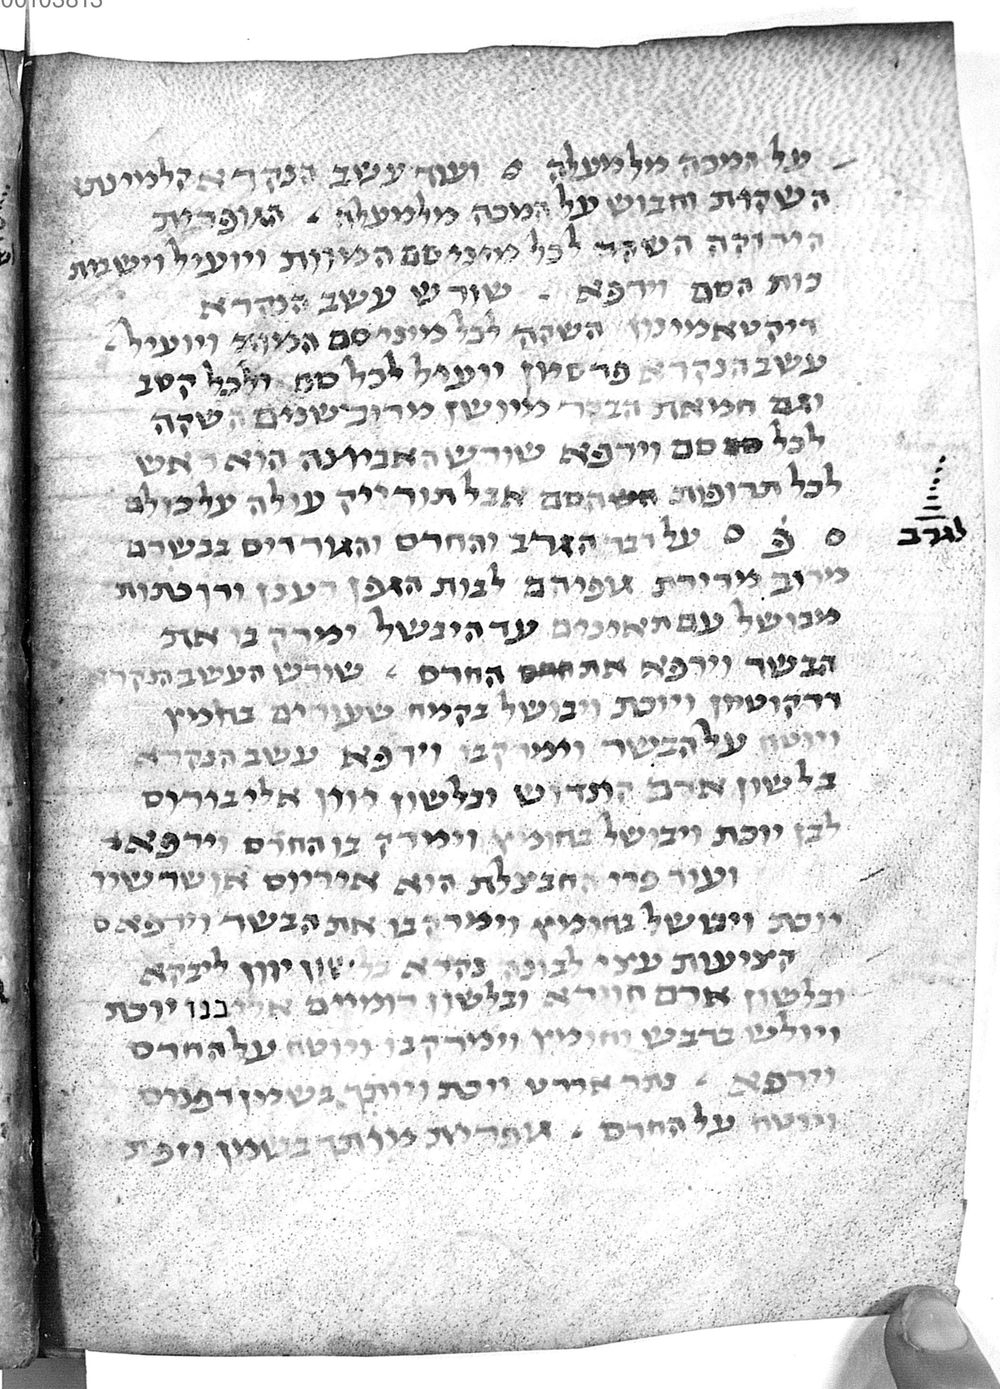 00103813
על המכה מלמעלה ס ועוד עשב הנקרא קלמינתו
השקות וחבוש על המכה מלמעלה . הגופרית
הירוקה השקה לכל מיני סם המוות ויועיל וישבית
כות הסם וירפא . שורש עשב הנקרא
דיקטאמינון השקה לכל מיני סם המות ויועיל
עשב הנקרא פרסיון יועיל לכל סם ולכל קטב
וגם חמאת הבקר מיושן מרוב שנים השקה
לכל סם וירפא שורש האביונה הוא ראש
לכל תרופות הסם אבל תורייק עולה על כולם
לגרב
ס פ ס על דבר הגרב והחרס והגורדים בבשרם
מרוב מרירת גופיהם לבות הגפן רענן ודו כתות
מבושל עם תאינים עד היבשל ימרק בו את
הבשר וירפא את החרס . שורש העשב הנקרא
דרקוטיון ויוכת ויבושל בקמח שעורים בחמץ
ויוטח על הבשר וימרק בו וירפא עשב הנקרא
בלשון ארם הנדוש ובלשון יוון אליבורוס
לבן יוכת ויבושל בחומץ וימרק בו החרס וירפא
ועוד פרי החבצלת הוא אירוס אושר שיי
יוכת ויבושל בחומץ וימרק בו את הבשר וירפא ס
קציעות עצי לבונה נקרא בלשון יוון ליבקא
ובלשון ארם חונרא ובלשון רומיים יוכת
ויולש בדבש וחומץ וימרק בו ויוטח על החרס
וירפא . נתר יוכת ויותך בשמן דפנים
ויוטח על החרס . גופרית מותך בשמן וזפת